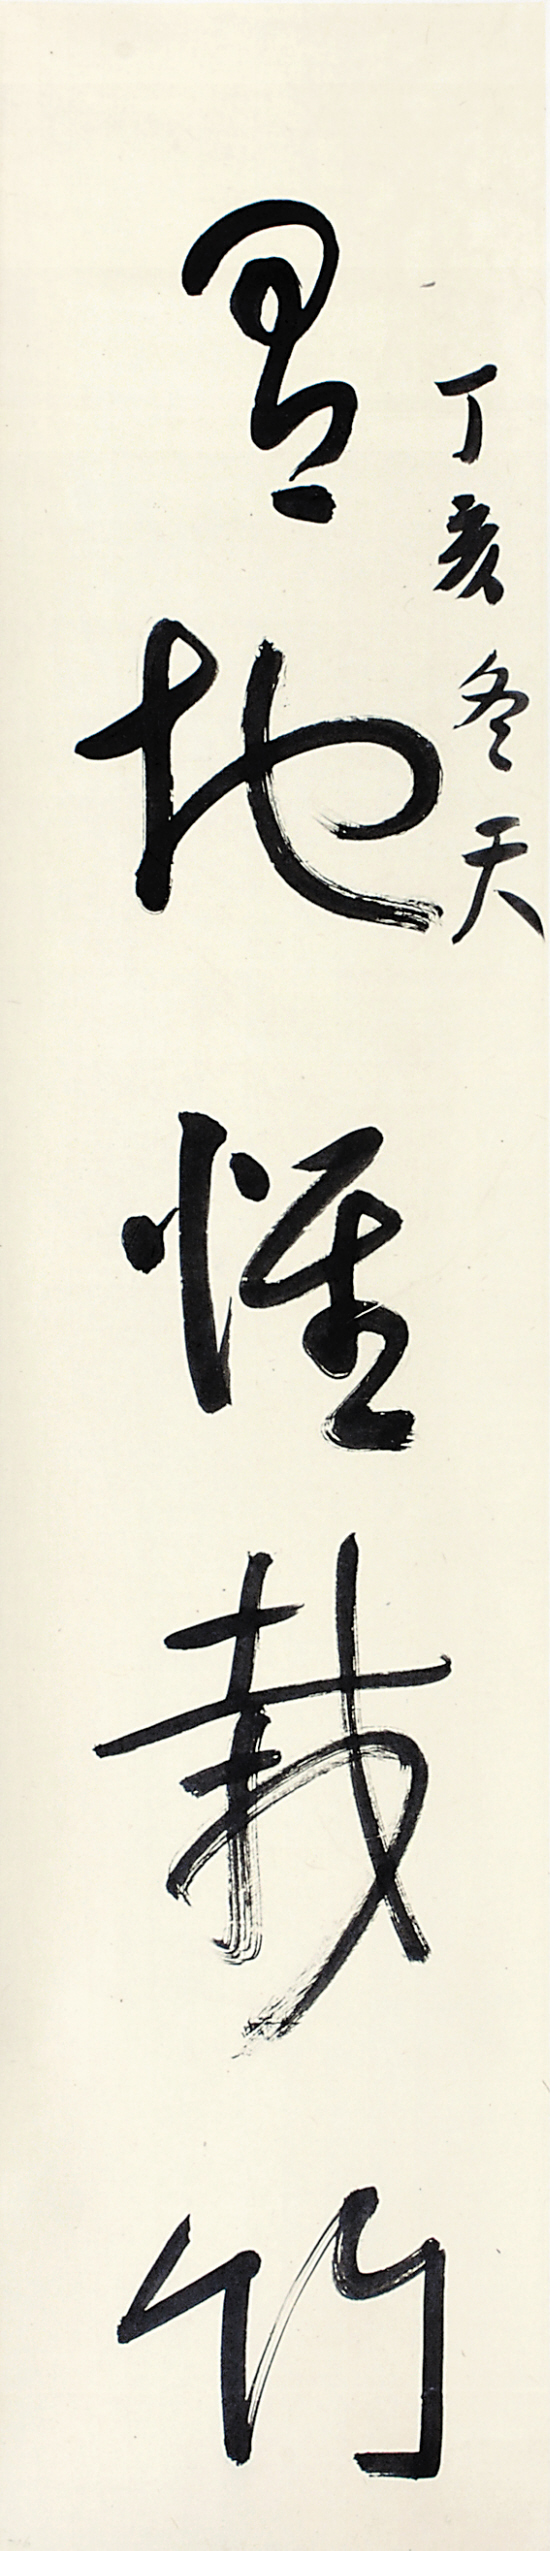 丁亥冬天
買地惟栽竹